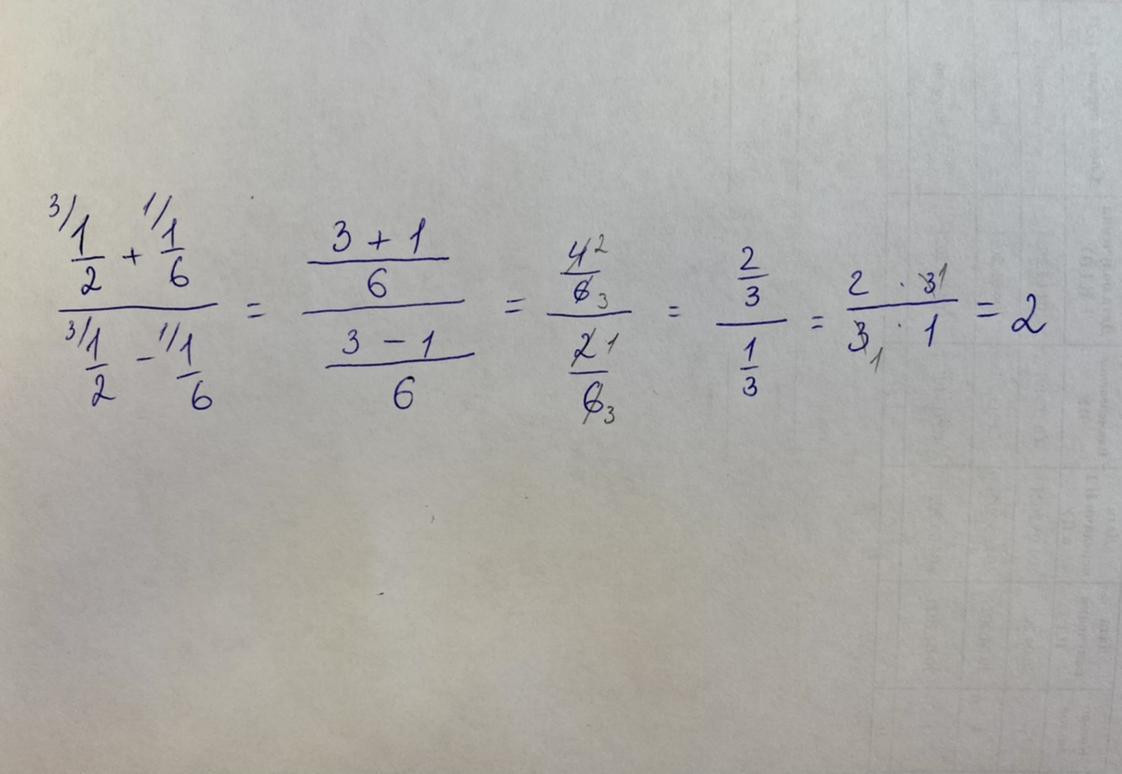 (³/1/2 + ¹/1/6)/(³/1/2 - ¹/1/6) = ((3 + 1)/6)/((3 - 1)/6) = (4²/6₃)/(2¹/6₃) = (2/3)/(1/3) = (2 · 3¹)/(3₁ · 1) = 2